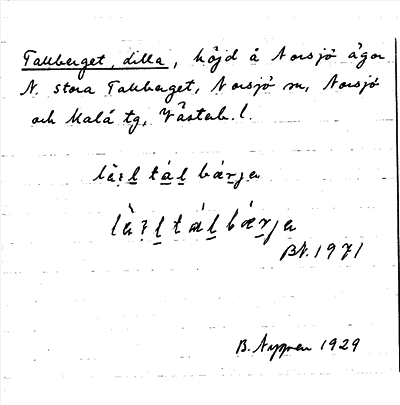 Tallberget, lilla, höjd å Norsjö ägor
N. stora Tallberget, Norsjö sn, Norsjö
och Malå tg, Västerb. l.
là:ɩl̲ tál̲ bærja
là:ɩl̲ tál̲ bærja
BN. 1971
B. Nygren 1929